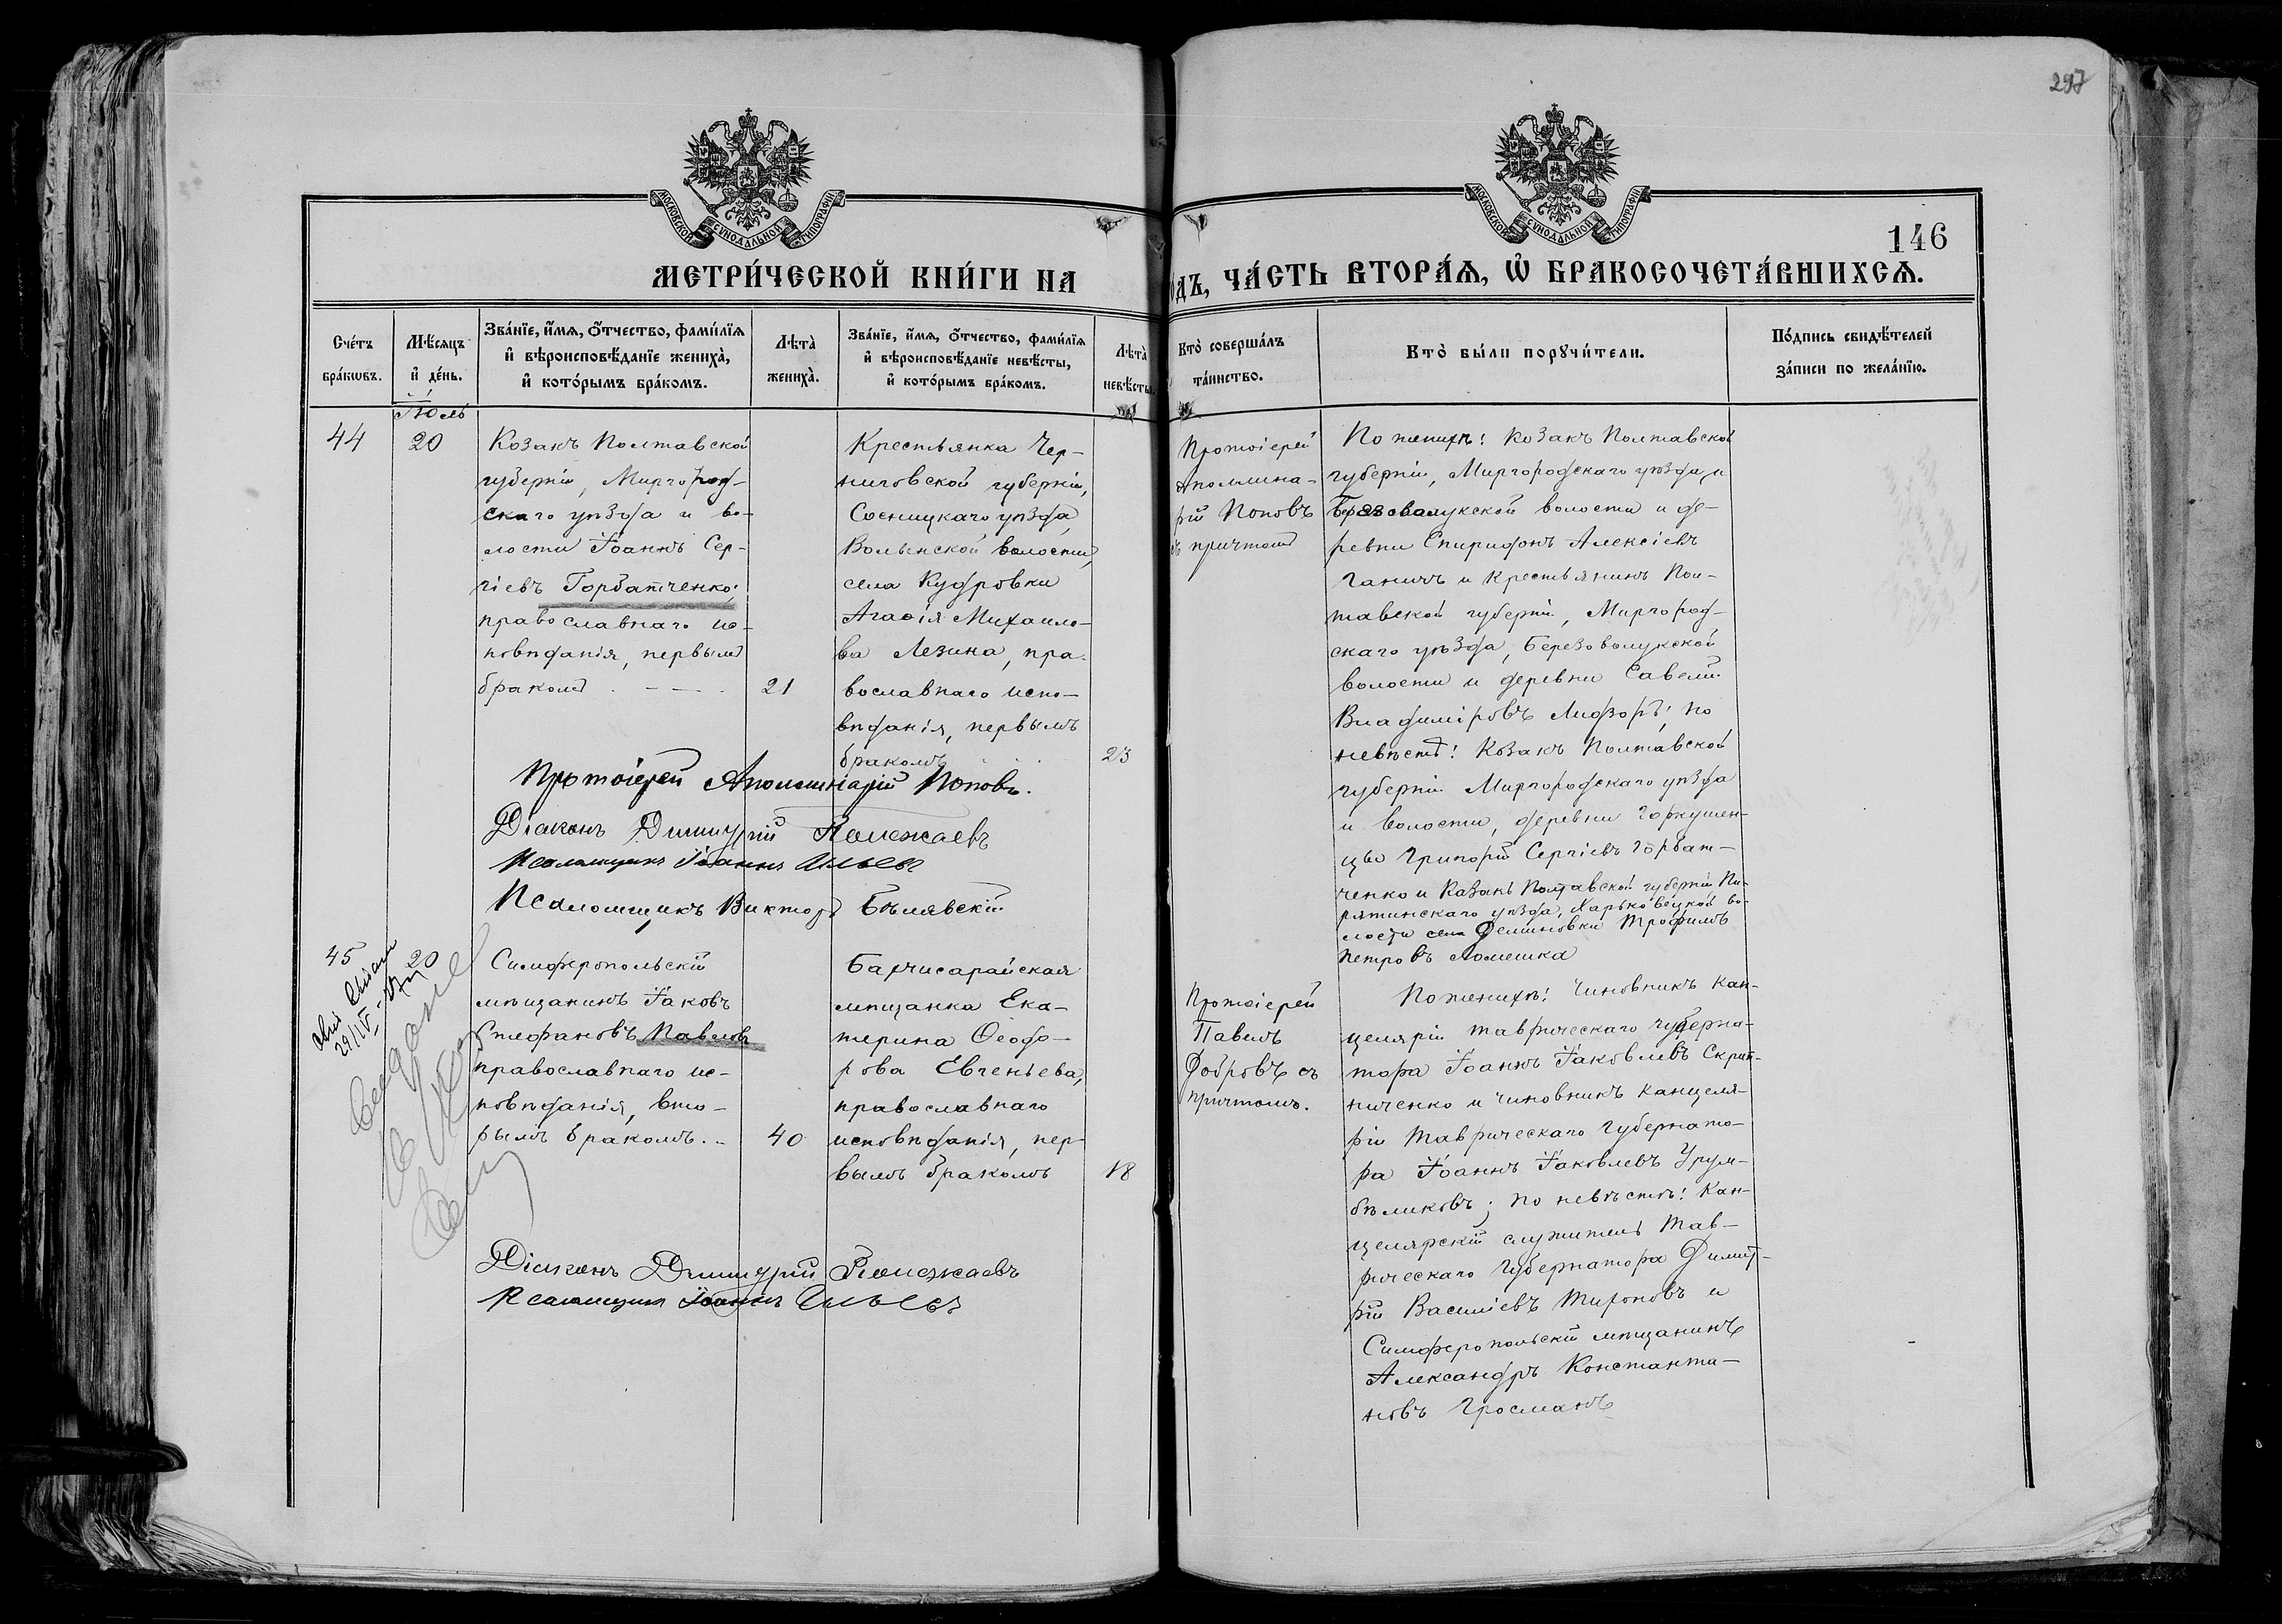 297
МОСКОВСКОЙ СѴНОДАЛЬНОЙ ТИПОГРАФІИ
МОСКОВСКОЙ СѴНОДАЛЬНОЙ ТИПОГРАФІИ
146
МЕТРИ́ЧЕСКОЙ КНИ́ГИ НА
ОДЪ, ЧА́СТЬ ВТОРА́Ѧ, Ѡ БРАКОСОЧЕТА́ВШИХСѦ.
Сче́тъ
бра́кѡвъ.
Мѣ́сяцъ
и҆ де́нь.
Зва́нїе, и҆́мѧ, о҆́тчество, фами́лїѧ
и҆ вѣроисповѣ́данїе женихà,
и҆ кото́рымъ бра́комъ.
Лѣтà
женихà.
Зва́нїе, и҆́мѧ, о҆́тчество, фами́лїѧ
и҆ вѣроисповѣ́данїе невѣ́сты,
и҆ кото́рымъ бра́комъ.
Лѣтà
невѣ́сты.
Кто̀ соверша́лъ
та́инство.
Кто̀ бы́ли порꙋчи́тели.
По́дпись свидѣ́телей
за́писи по жела́нїю.
Іюль
44
20
Козакъ Полтавской
губерніи, Миргород-
скаго уѣзда и во-
лости Іоаннъ Сер-
гіевъ Горбатченко;
православнаго ис-
повѣданія, первымъ
бракомъ . - - - .
21
Крестьянка Чер-
ниговской губерніи,
Сосницкаго уѣзда,
Волынской волости,
села Кудровки
Агаѳія Михаило-
ва Лезина, пра-
вославнаго испо-
вѣданія, первымъ
бракомъ
23
Протоіерей
Аполлина-
рій Поповъ
съ причтомъ
По женихѣ: козакъ Полтавской
губерніи, Миргородскаго уѣзда,
Березоволукской волости и де-
ревни Спиридонъ Алексіевъ
Ганичъ и крестьянинъ Пол-
тавской губерніи, Миргород-
скаго уѣзда, Березоволукской
волости и деревни Савелій
Владиміровъ Лидзоръ; по
невѣстѣ: козакъ Полтавской
губерніи Миргородскаго уѣзда
и волости, деревни Горкушен-
цы Григорій Сергіевъ Горбат-
ченко и казакъ Полтавской губерніи Пи-
рятинскаго уѣзда, Харьковецкой во-
лости села Деминовки Трофимъ
Петровъ Ломешка
Протоіерей Аполлинарій Поповъ.
Діаконъ Димитрій Полежаевъ
Псаломщикъ Іоаннъ Ильевъ
Псаломщикъ Викторъ Бѣлявскій
45
20
Симферопольскій
мѣщанинъ Іаковъ
Стефановъ Павловъ
православнаго ис-
повѣданія, вто-
рымъ бракомъ. -
40
Бахчисарайская
мѣщанка Ека-
терина Ѳеодо-
рова Евгеньева,
православнаго
исповѣданія, пер-
вымъ бракомъ
18
Протоіерей
Павелъ
Добровъ съ
причтомъ.
По женихѣ: чиновникъ кан-
целяріи Таврическаго губерна-
тора Іоаннъ Іаковлевъ Скрип-
ниченко и чиновникъ канцеля-
ріи Таврическаго Губернато-
ра Іоаннъ Іаковлевъ Урум-
бѣликовъ; по невѣстѣ: кан-
целярскій служитель Тав-
рическаго Губернатора Димит-
рій Василіевъ Тироновъ и
Симферопольскій мѣщанинъ
Александръ Константи-
новъ Гросманъ
Діаконъ Димитрій Полежаевъ
Псаломщикъ Іоаннъ Ильевъ